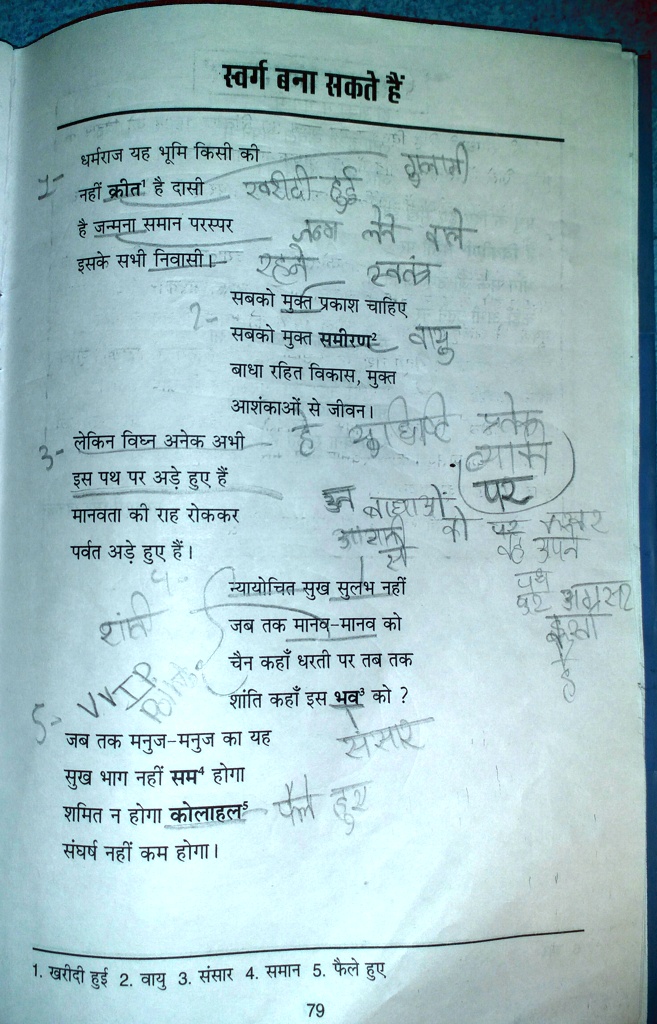 स्वर्ग बना सकते हैं
धर्मराज यह भूमि किसी की
1- नहीं क्रीत¹ है दासी खरीदी हुई गुलामी
है जन्मना समान परस्पर जन्म लेने वाले
इसके सभी निवासी। रहने स्वतंत्र
सबको मुक्त प्रकाश चाहिए
2- सबको मुक्त समीरण² वायु
बाधा रहित विकास, मुक्त
आशंकाओं से जीवन।
3- लेकिन विघ्न अनेक अभी
इस पथ पर अड़े हुए हैं
मानवता की राह रोककर
पर्वत अड़े हुए हैं।
है
पर
बाधाओं
को पर
से
पथ
पर अग्रसर
है
4-
न्यायोचित सुख सुलभ नहीं
जब तक मानव-मानव को
चैन कहाँ धरती पर तब तक
शांति कहाँ इस भव³ को ?
शांती
VVIP
Point
5-
जब तक मनुज-मनुज का यह
संसार
सुख भाग नहीं सम⁴ होगा
शमित न होगा कोलाहल⁵ फैले हुए
संघर्ष नहीं कम होगा।
1. खरीदी हुई 2. वायु 3. संसार 4. समान 5. फैले हुए
79